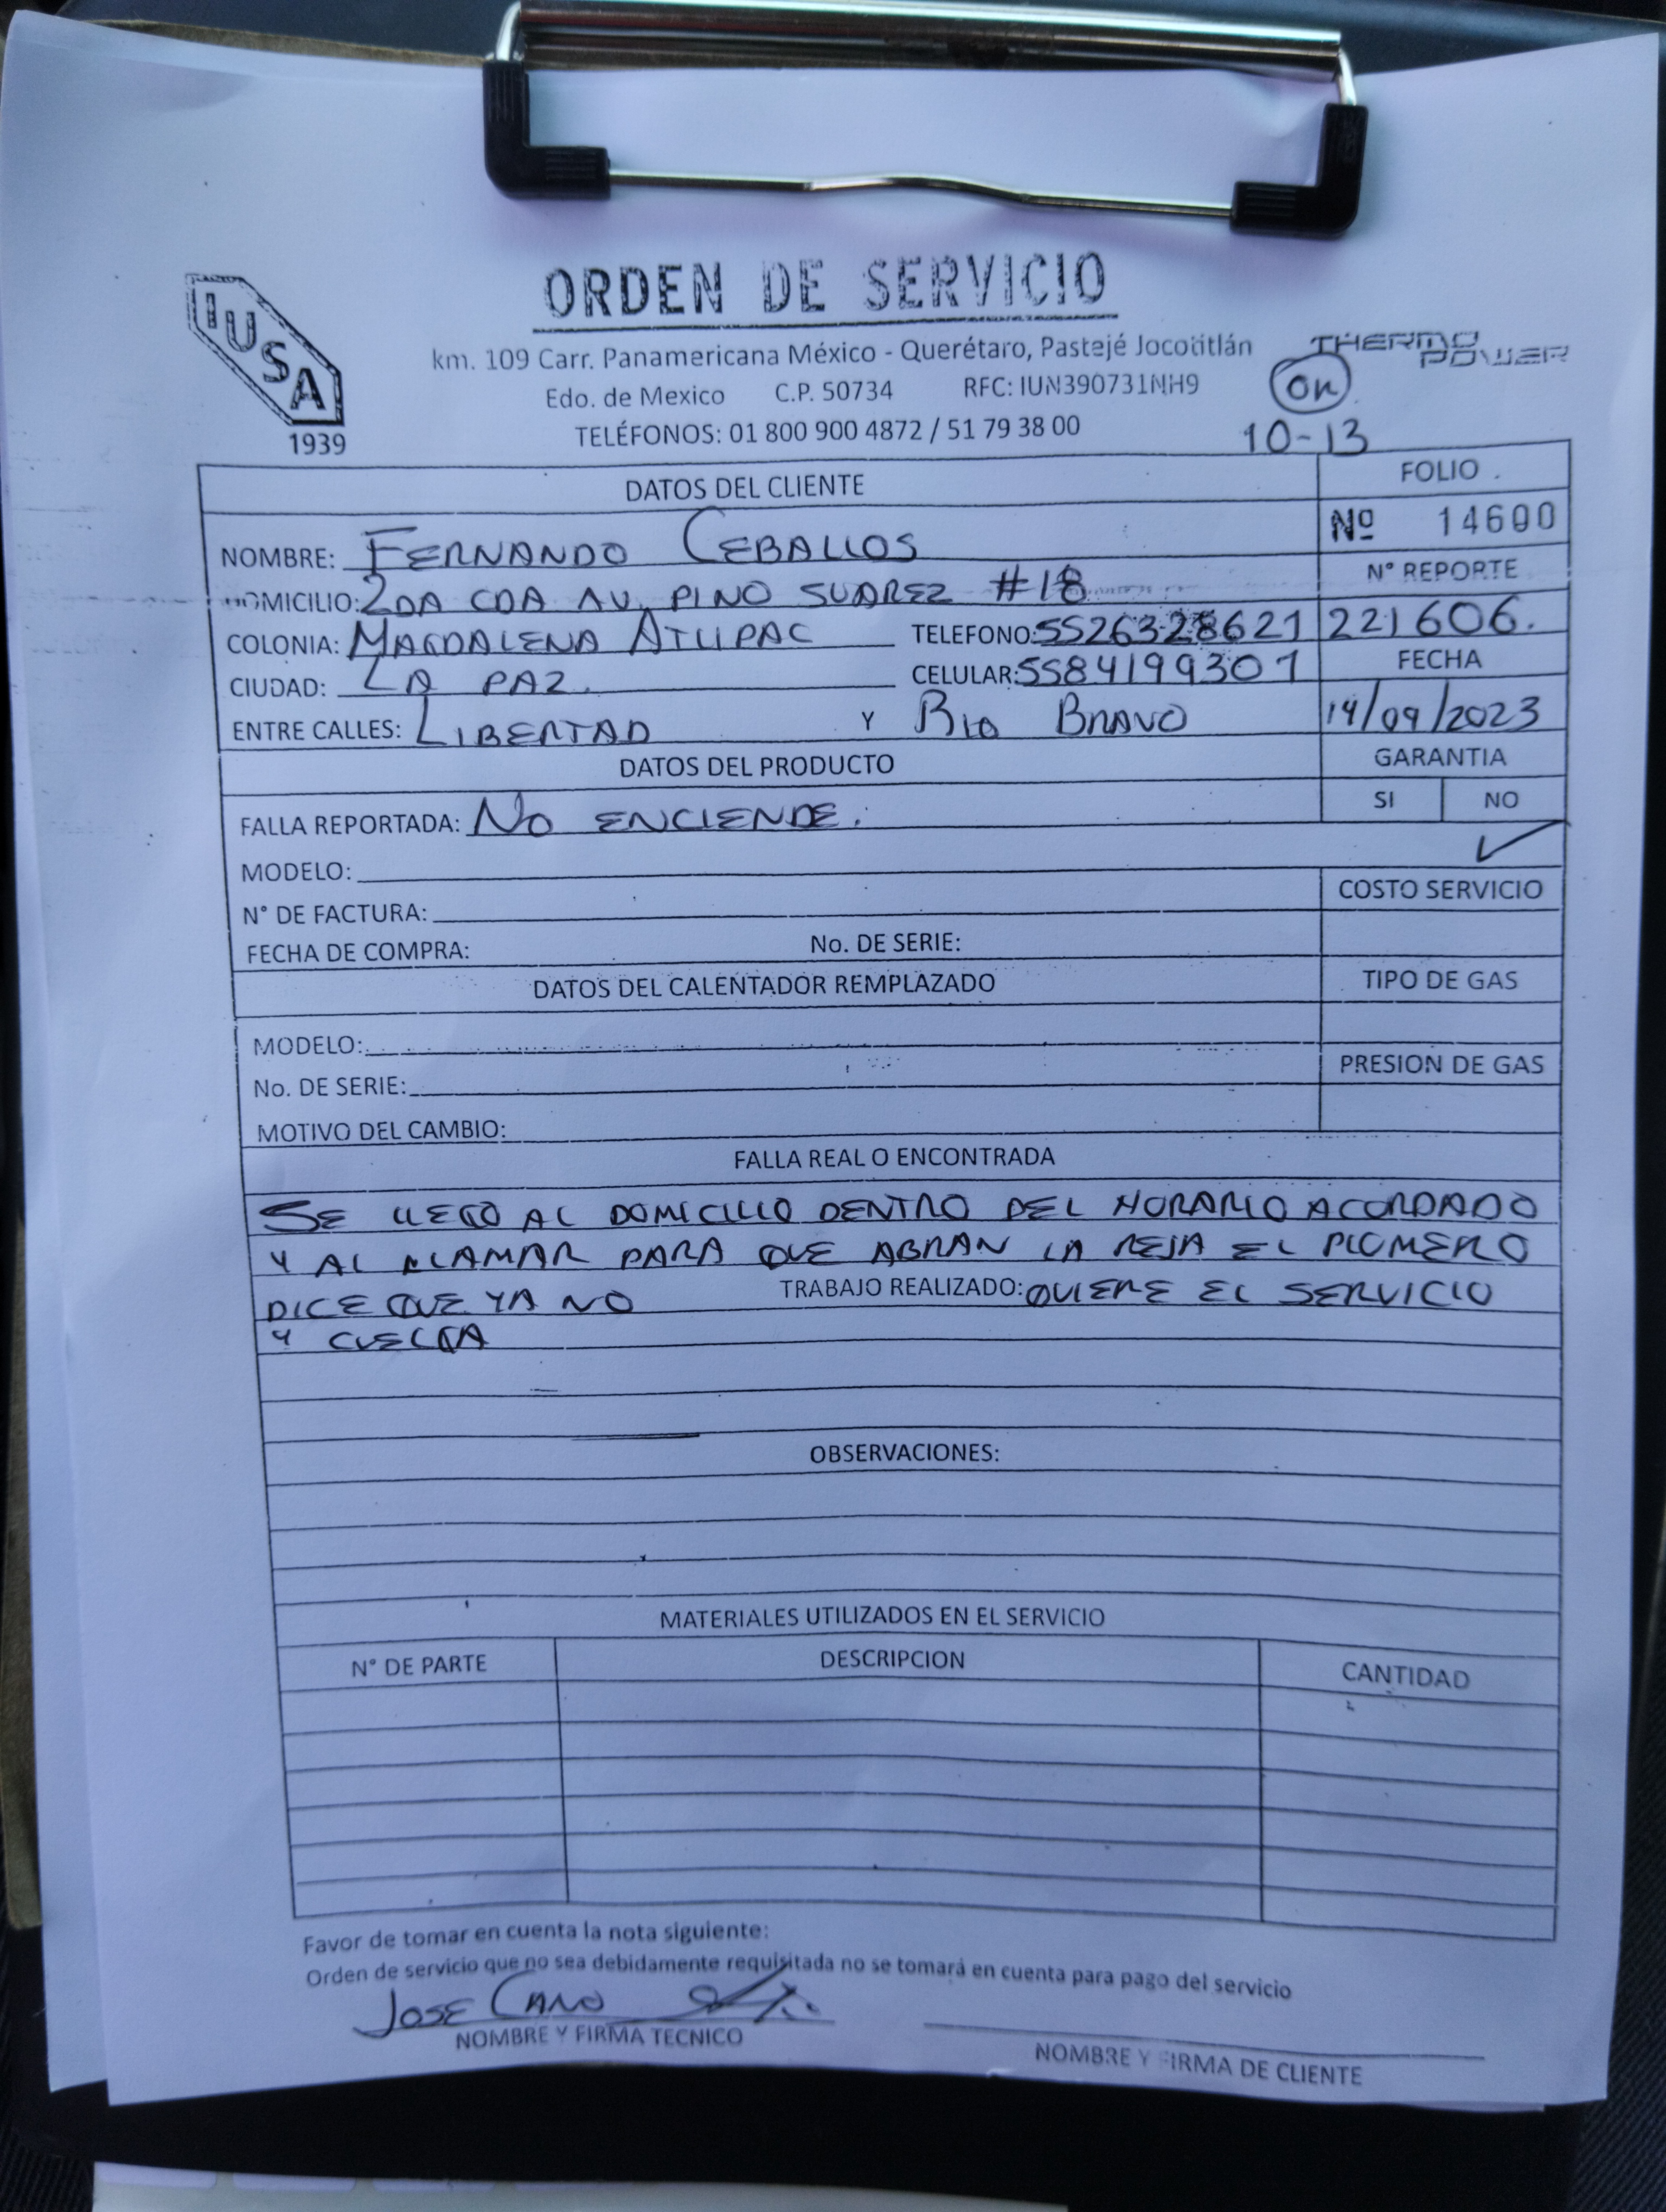 ORDEN DE SERVICIO
IUSA
1939
km. 109 Carr. Panamericana México - Querétaro, Pastejé Jocotitlán
THERMO POWER
Edo. de Mexico C.P. 50734 RFC: IUN390731NH9
TELÉFONOS: 01 800 900 4872 / 51 79 38 00
10-13
DATOS DEL CLIENTE
FOLIO
Nº 14600
NOMBRE: FERNANDO CEBALLOS
Nº REPORTE
DOMICILIO: 2DA CDA AV. PINO SUAREZ #18
221606.
COLONIA: MAGDALENA ATLIPAC TELEFONO: 5526328621
FECHA
CIUDAD: LA PAZ. CELULAR: 5584199307
14/09/2023
ENTRE CALLES: LIBERTAD Y RIO BRAVO
DATOS DEL PRODUCTO
GARANTIA
SI NO
FALLA REPORTADA: NO ENCIENDE.
MODELO:
COSTO SERVICIO
N° DE FACTURA:
FECHA DE COMPRA: No. DE SERIE:
DATOS DEL CALENTADOR REMPLAZADO
TIPO DE GAS
MODELO:
PRESION DE GAS
No. DE SERIE:
MOTIVO DEL CAMBIO:
FALLA REAL O ENCONTRADA
SE LLEGO AL DOMICILIO DENTRO DEL HORARIO ACORDADO
Y AL LLAMAR PARA QUE ABRAN LA REJA EL PLOMERO
DICE QUE YA NO TRABAJO REALIZADO: QUIERE EL SERVICIO
Y CUELGA
OBSERVACIONES:
MATERIALES UTILIZADOS EN EL SERVICIO
N° DE PARTE DESCRIPCION CANTIDAD
Favor de tomar en cuenta la nota siguiente:
Orden de servicio que no sea debidamente requisitada no se tomará en cuenta para pago del servicio
JOSE CANO
NOMBRE Y FIRMA TECNICO
NOMBRE Y FIRMA DE CLIENTE